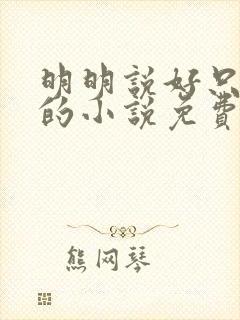 明明說好只
的小說免費
熊网琴